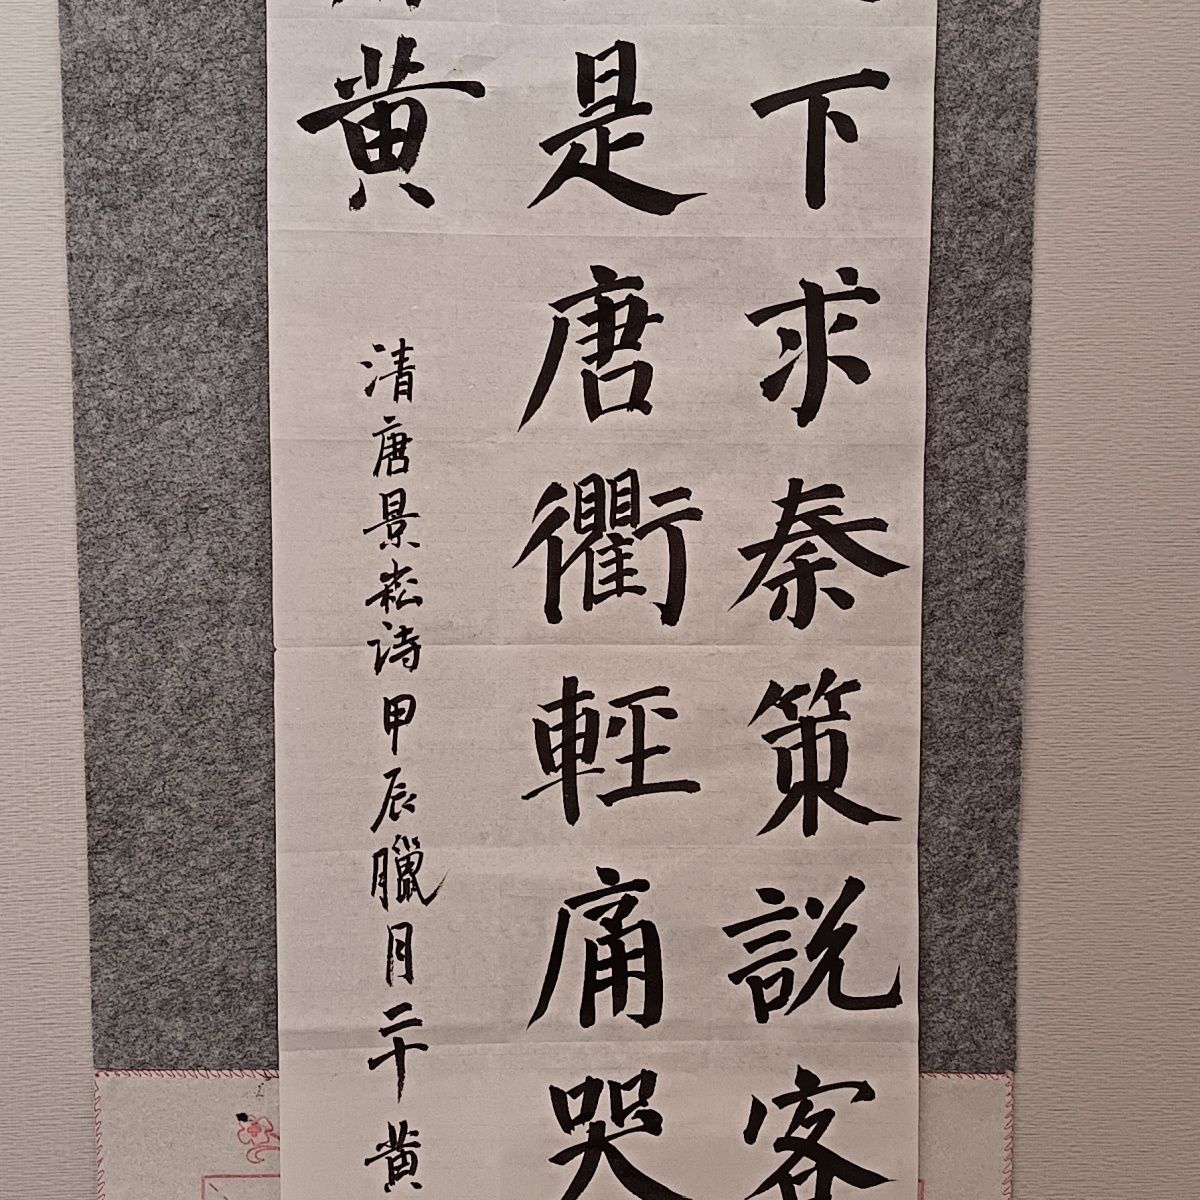 下求秦策説客
是唐衢輕痛哭
黄
清唐景崧诗甲辰臘月二十黄